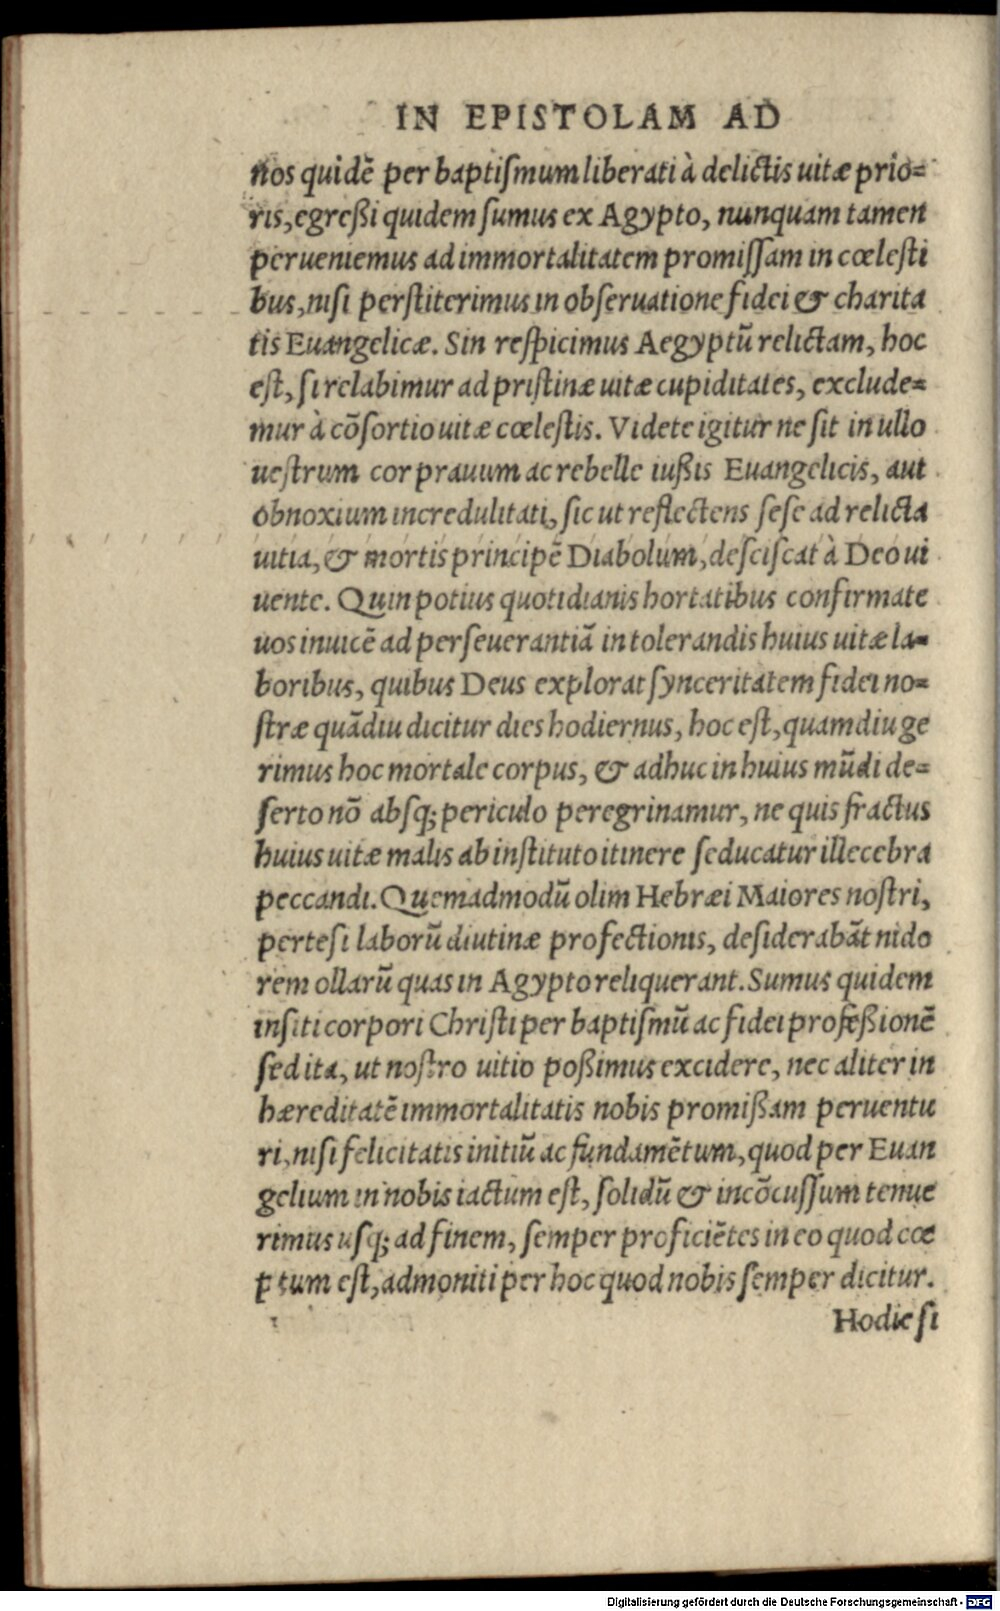 IN EPISTOLAM AD
nos quidē per baptiſmum liberati à delictis uitæ prio=
ris, egreßi quidem ſumus ex Agypto, nunquam tamen
perueniemus ad immortalitatem promiſſam in cœleſti
bus, niſi perſtiterimus in obſeruatione fidei & charita
tis Euangelicæ. Sin reſpicimus Aegyptū relictam, hoc
eſt, ſi relabimur ad priſtinæ uitæ cupiditates, exclude=
mur à cōſortio uitæ cœleſtis. Videte igitur ne ſit in ullo
ueſtrum cor prauum ac rebelle iußis Euangelicis, aut
obnoxium incredulitati, ſic ut reflectens ſeſe ad relicta
uitia, & mortis principē Diabolum, deſciſcat à Deo ui
uente. Quin potius quotidianis hortatibus confirmate
uos inuicē ad perſeuerantiā in tolerandis huius uitæ la=
boribus, quibus Deus explorat ſynceritatem fidei no=
ſtræ quādiu dicitur dies hodiernus, hoc eſt, quamdiu ge
rimus hoc mortale corpus, & adhuc in huius mūdi de=
ſerto nō abſq; periculo peregrinamur, ne quis fractus
huius uitæ malis ab inſtituto itinere ſeducatur illecebra
peccandi. Quemadmodū olim Hebræi Maiores noſtri,
perteſi laborū diutinæ profectionis, deſiderabāt nido
rem ollarū quas in Agypto reliquerant. Sumus quidem
inſiti corpori Chriſti per baptiſmū ac fidei profeßionē
ſed ita, ut noſtro uitio poßimus excidere, nec aliter in
hæreditatē immortalitatis nobis promißam peruentu
ri, niſi felicitatis initiū ac fundamētum, quod per Euan
gelium in nobis iactum eſt, ſolidū & incōcuſſum tenue
rimus uſq; ad finem, ſemper proficiētes in eo quod cœ
ptum eſt, admoniti per hoc quod nobis ſemper dicitur.
Hodie ſi
Digitalisierung gefördert durch die Deutsche Forschungsgemeinschaft - DFG